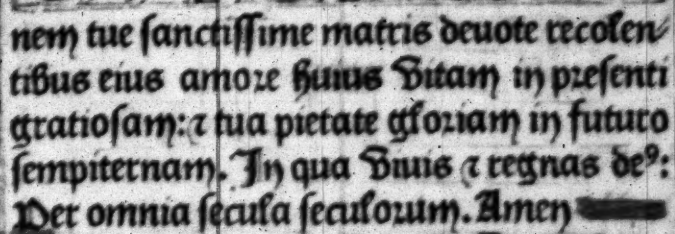 nem tue ſanctiſſime matris deuote recolen⸗
tibus eius amoꝛe huius vitam in pꝛeſenti
gratioſam: ⁊ tua pietate gloꝛiam in futuro
ſempiternam. In qua viuis ⁊ regnas deꝰ:
Per omnia ſecula ſeculoꝛum. Amen